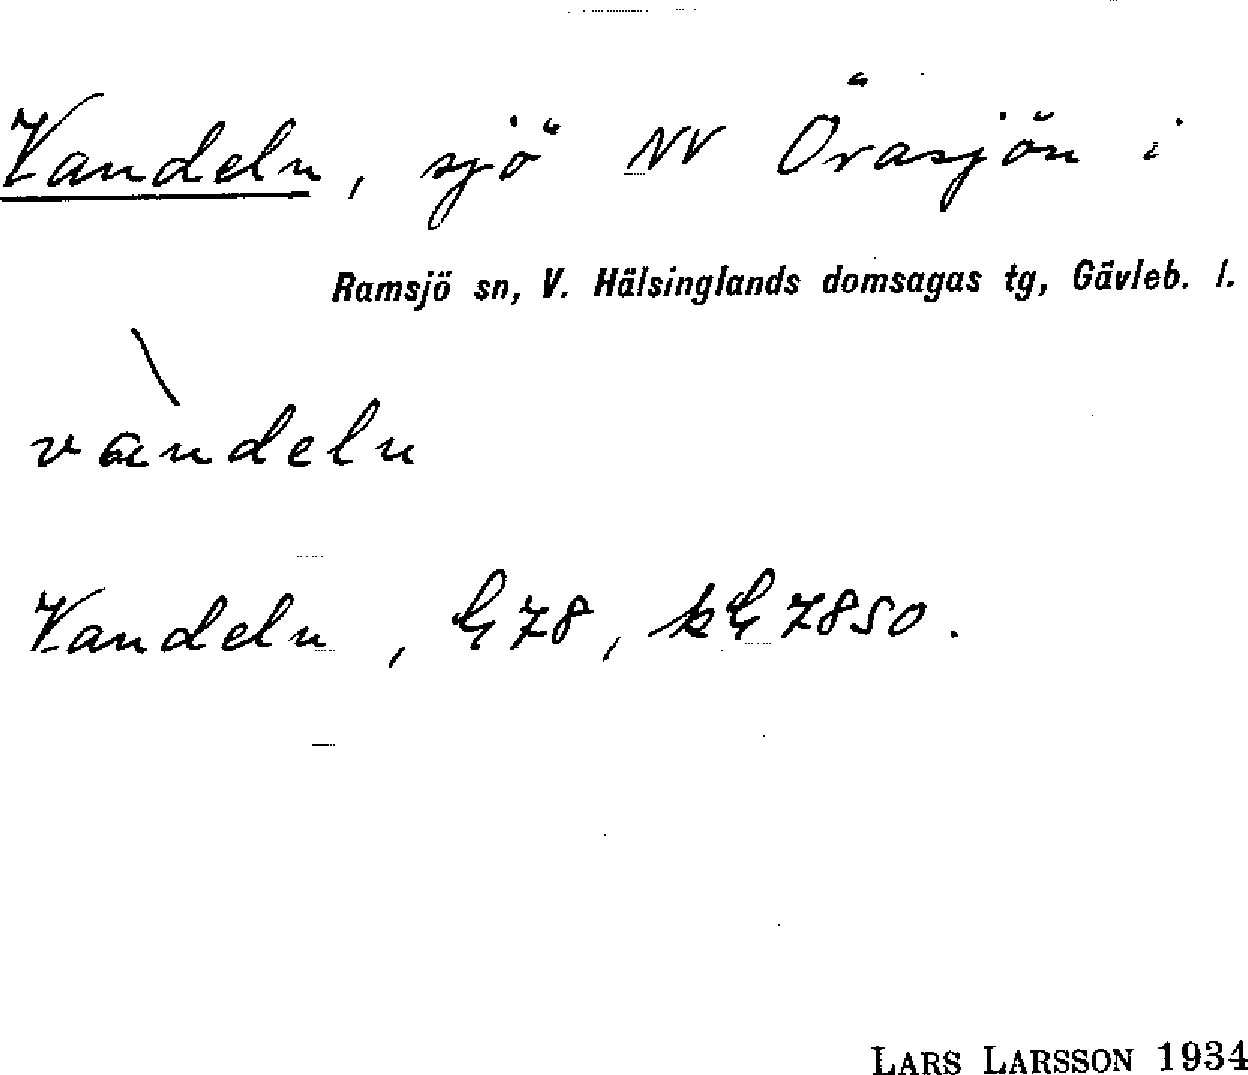 Vandeln, sjö NV Örasjön i
Ramsjö sn, V. Hälsinglands domsagas tg, Gävleb. l.
vàndeln
Vandeln, G78, kG 7850.
LARS LARSSON 1934